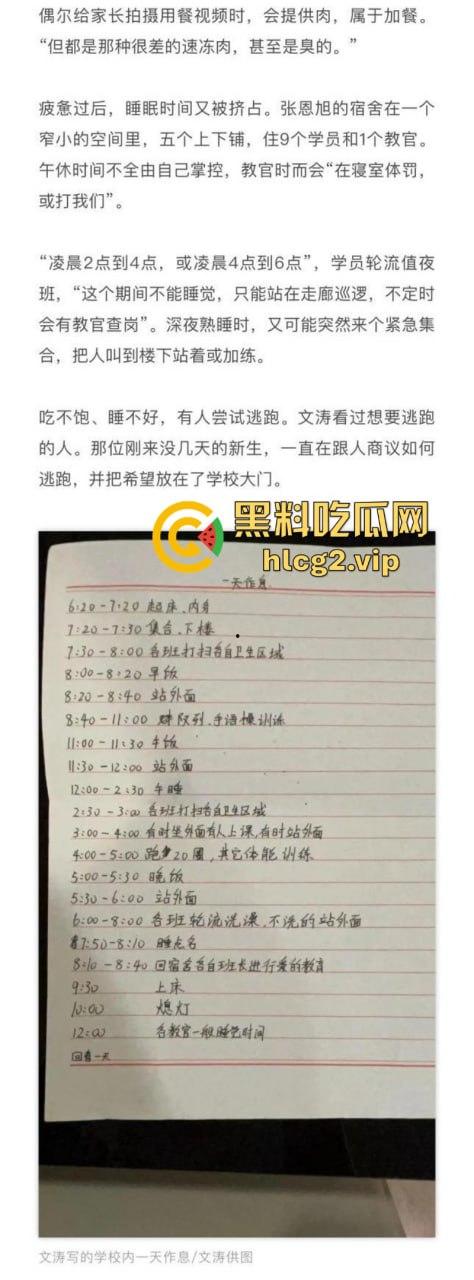 偶尔给家长拍摄用餐视频时，会提供肉，属于加餐。
“但都是那种很差的速冻肉，甚至是臭的。”
疲惫过后，睡眠时间又被挤占。张恩旭的宿舍在一个
窄小的空间里，五个上下铺，住9个学员和1个教官。
午休时间不全由自己掌控，教官时而会“在寝室体罚，
或打我们”。
“凌晨2点到4点，或凌晨4点到6点”，学员轮流值夜
班，“这个期间不能睡觉，只能站在走廊巡逻，不定时
会有教官查岗”。深夜熟睡时，又可能突然来个紧急集
合，把人叫到楼下站着或加练。
吃不饱、睡不好，有人尝试逃跑。文涛看过想要逃跑
的人。那位刚来没几天的新生，一直在跟人商议如何
逃跑，并把希望放在了学校大门。
黑料吃瓜网
hlcg2.vip
一天作息
6:20-7:20 起床、内务
7:20-7:30 集合、下楼
7:30-8:00 各班打扫各自卫生区域
8:00-8:20 早饭
8:20-8:40 站外面
8:40-11:00 队列、手语操训练
11:00-11:30 午饭
11:30-12:00 站外面
12:00-2:30 午睡
2:30-3:00 各班打扫各自卫生区域
3:00-4:00 有时坐外面有人上课,有时站外面
4:00-5:00 跑20圈,其它体能训练
5:00-5:30 晚饭
5:30-6:00 站外面
6:00-8:00 各班轮流洗澡,不洗的站外面
7:50-8:10 睡点名
8:10-8:40 回宿舍各自班长进行爱的教育
9:30 上床
10:00 熄灯
12:00 各教官一般睡觉时间
一天
文涛写的学校内一天作息/文涛供图